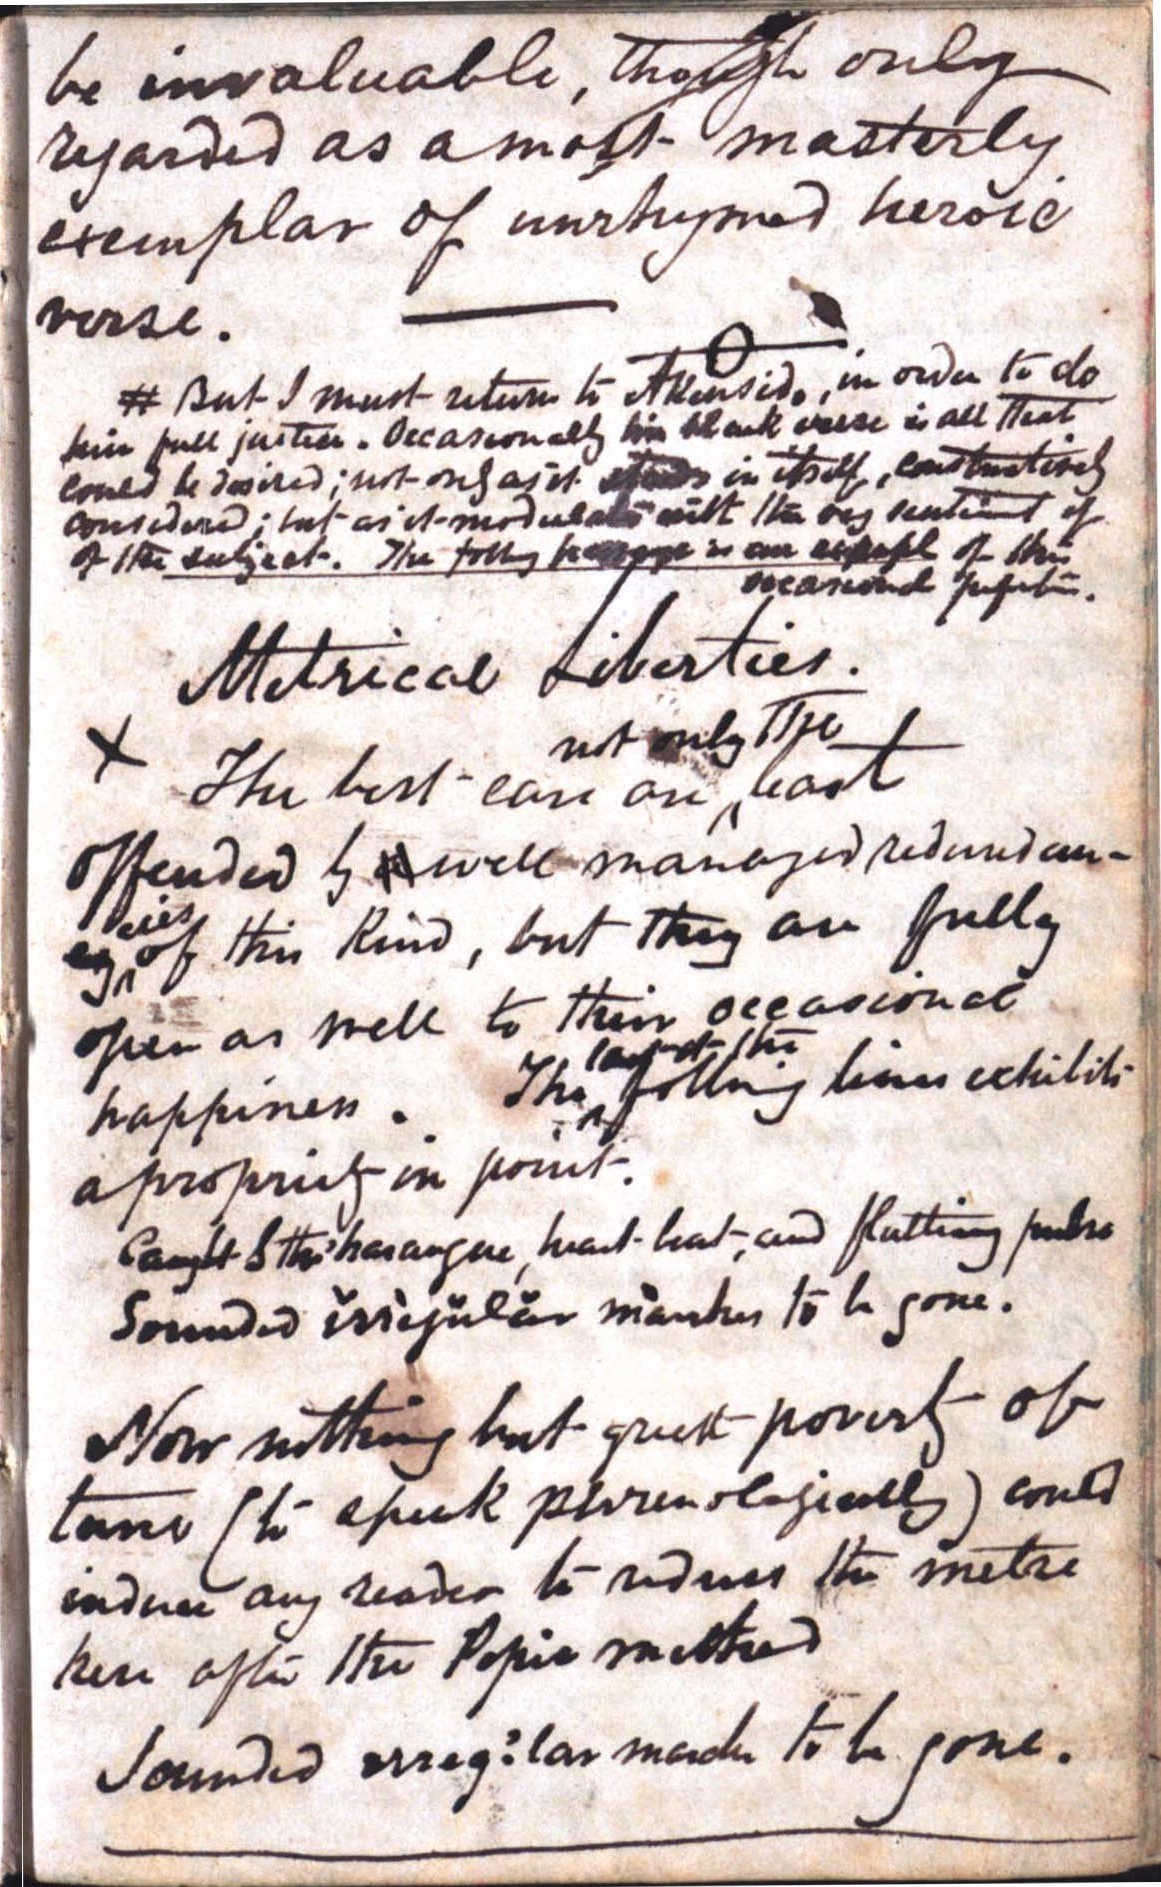 be invaluable, though only
regarded as a most masterly
exemplar of unrhymed heroic
verse.
# But I must return to Akenside, in order to do
him full justice. Occasionally his blank verse is all that
could be desired; not only as it stands in itself, constructively
considered; but as it modulates with the very sentiment of
of the subject. The follg passage is an example of this
occasional
Metrical Liberties.
not only the
X The best ears are ^ least
offended by well managed redundan-
cies
cy ^ of this kind, but they are fully
open as well to their occasional
happiness.
last of the
The ^ follwing lines exhibits
a propriety in point.
Caught I the harangue, heart beat, and flutting pulse
Sounded ĭrrĕgŭlăr marches to be gone.
Now nothing but great poverty of
tune (to speak phrenologically) could
induce any reader to reduce the metre
here after the Popic method
Sounded irreg'lar marches to be gone.